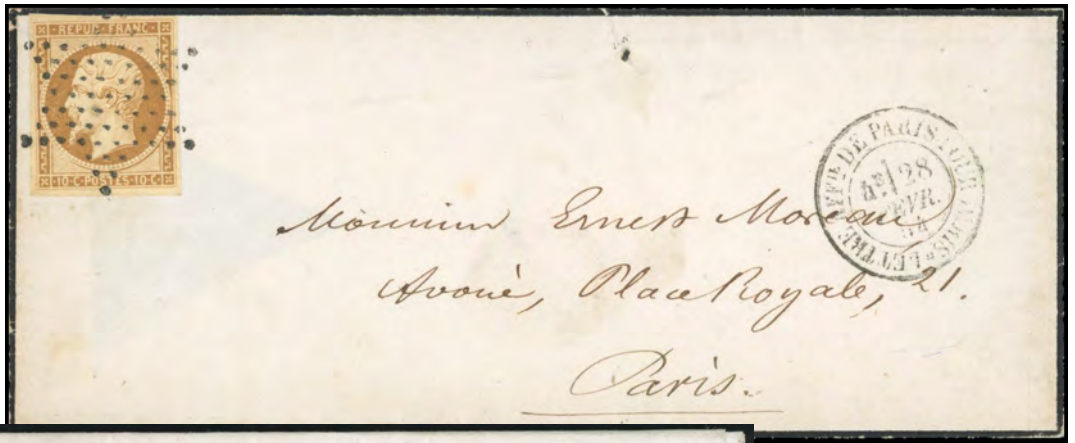 REPUB·FRANC·
10·C·POSTES·10·C·
AFFie DE PARIS POUR PARIS LETTRE
4E 28
FEVR.
54
Monsieur Ernest Moreau
Avoué, Place Royale, 21.
Paris.